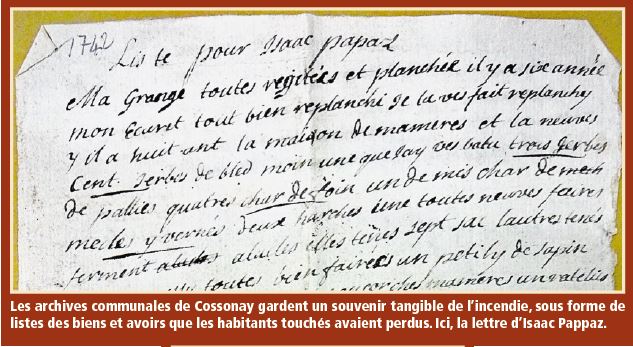 1742
Liste pour Isaac papaz
Ma Grange toutes regitées et planchée il y a six année
mon Ecurit tout bien replanchi Je la ves fait replanchy
y il a huit ant la maison de mameres et la neuves
Cent Jerbes de bled moin une que Jay ves batu trois Jerbes
de pallies quatres char de foin un de mis char de
mecles y vernés deux harches une toutes neuves
ferment alules elles tenes sept sac lautres tenes
toutes bien faires un petily de sapin
mameres un ratelies
Les archives communales de Cossonay gardent un souvenir tangible de l’incendie, sous forme de
listes des biens et avoirs que les habitants touchés avaient perdus. Ici, la lettre d’Isaac Pappaz.